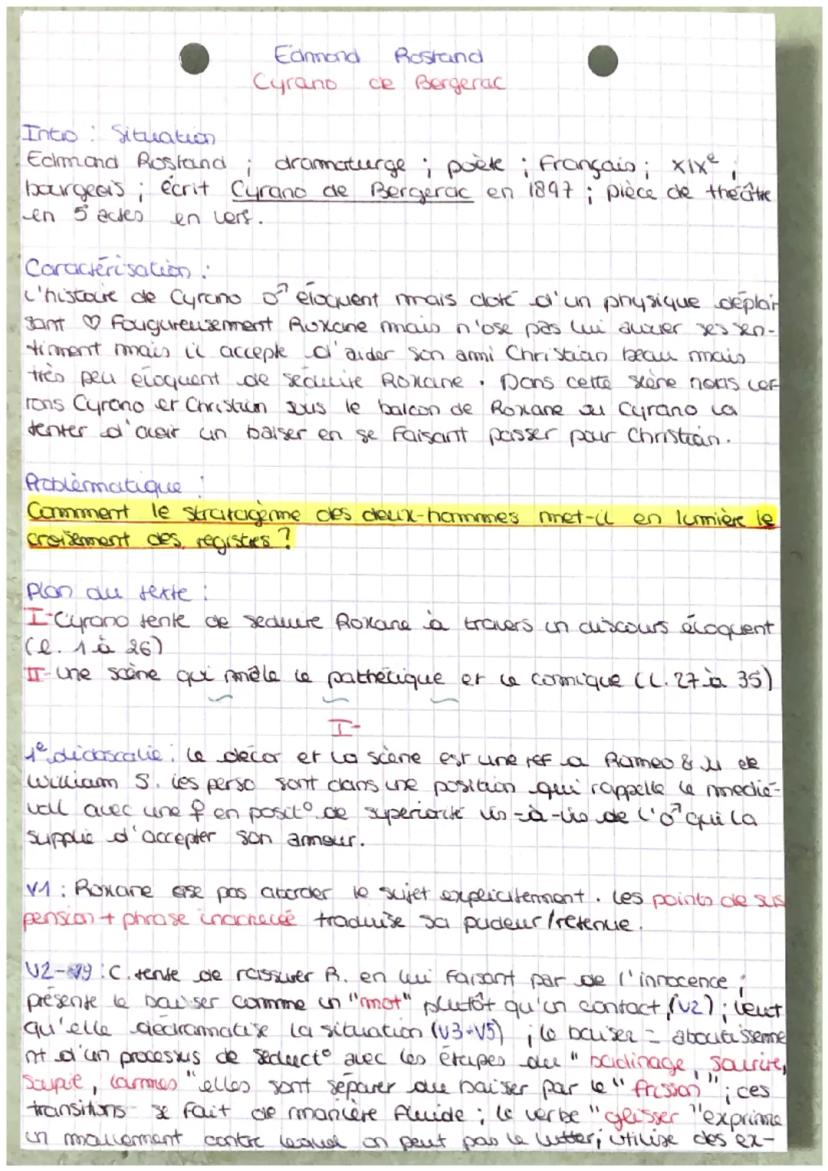 Edmond Rostand
Cyrano de Bergerac
Intro : Situation
Edmond Rostand ; dramaturge ; poète ; Français ; XIXe ;
bourgeois ; écrit Cyrano de Bergerac en 1897 ; pièce de théâtre
en 5 actes en vers.
Caractérisation :
L'histoire de Cyrano ♂ éloquent mais doté d'un physique déplai
sant ♡ Fougureusement Roxane mais n'ose pas lui avouer ses sen-
timent mais il accepte d'aider son ami Christian beau mais
très peu éloquent de séduire Roxane. Dans cette scène nous ver
rons Cyrano et Christian sous le balcon de Roxane où Cyrano va
tenter d'avoir un baiser en se faisant passer pour Christian.
Problèmatique :
Comment le stratagème des deux-hommes met-il en lumière le
croisement des registres ?
Plan du texte :
I-Cyrano tente de séduire Roxane à travers un discours éloquent
(l. 1 à 26)
II-une scène qui mêle le pathétique et le comique (L. 27 à 35)
I-
1e didascalie : Le décor et la scène est une ref a Romeo & Ju de
William S. les perso sont dans une position qui rappelle le medié-
vall avec une ♀ en posit° de superiorité vis-à-vis de l'♂ qui la
supplie d'accepter son amour.
V1 : Roxane ose pas aborder le sujet explicitement. Les points de sus
pension + phrase inachevé traduise sa pudeur/retenue.
V2-V9 : C. tente de rassurer R. en lui faisant par de l'innocence ;
présente le baiser comme un "mot" plutôt qu'un contact (V2) ; veut
qu'elle dédramatise la situation (V3-V5) ; le baiser = aboutisseme
nt d'un processus de séduct° avec les étapes du "badinage, sourire,
soupir, larmes" elles sont séparer du baiser par le "frisson" ; ces
transitions se fait de manière fluide ; le verbe "glisser" exprime
un mouvement contre lequel on peut pas lutter ; utilise des ex-